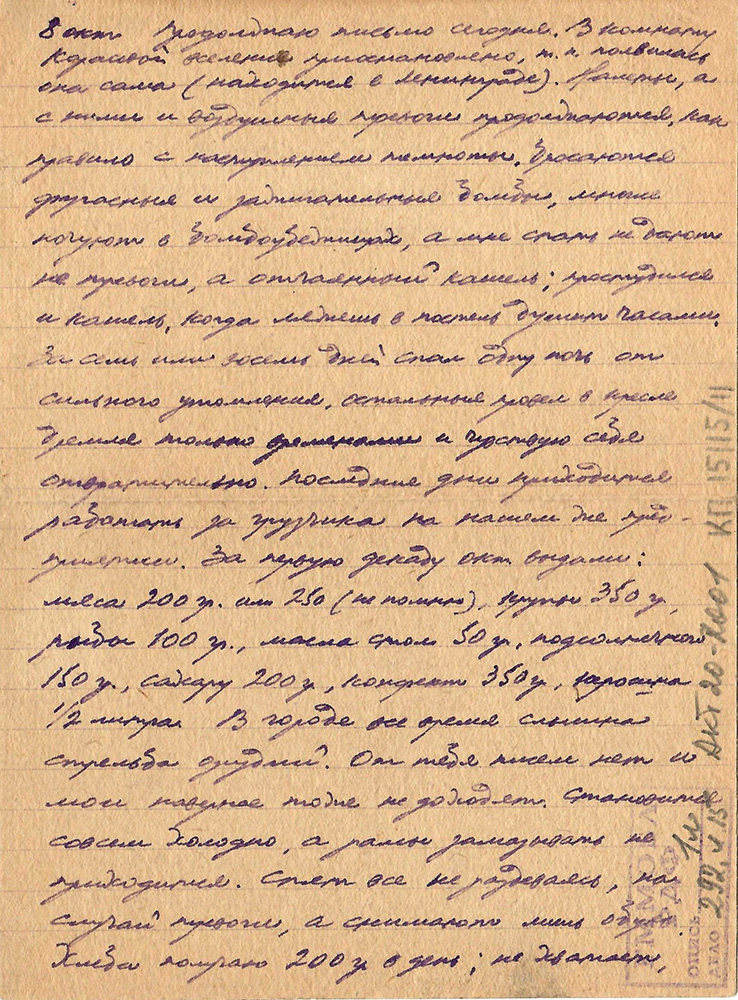 8 окт Продолжаю письмо сегодня. В комнату
Красной вселение приостановлено, т.к. появилась
она сама (находится в Ленинграде). Налеты, а
с ними и воздушные тревоги продолжаются, как
правило с наступлением темноты. Бросаются
фугасные и зажигательные бомбы, многие
ночуют в бомбоубежищах, а мне спать не дают
не тревоги, а отчаянный кашель; простудился
и кашель, когда ляжешь в постель душит часами.
За семь или восемь дней спал одну ночь от
сильного утомления, остальные провел в кресле
дремля только временами и чувствую себя
отвратительно. Последние дни приходится
работать за грузчика на нашем же пред-
приятии. За первую декаду окт. выдали:
мяса 200 гр. или 250 (не помню), крупы 350 г,
рыбы 100 гр., масла стол 50 гр, подсолнечного
150 г, сахару 200 г, конфект 350 г, керосина
1/2 литра. В городе все время слышна
стрельба орудий. От тебя писем нет и
мои наверное тоже не доходят. Становится
совсем холодно, а рамы замазывать не
приходится. Спят все не раздеваясь, на
случай тревоги, а снимают лишь обувь.
Хлеба получаю 200 гр в день; не хватает,
Акт 20-2001 КП 15115/11
ОПИСЬ
ДЕЛО